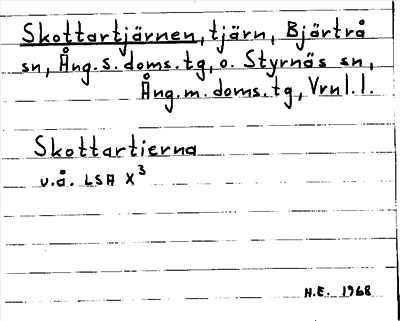 Skottartjärnen, tjärn, Bjärtrå
sn, Ång.s.doms.tg, o. Styrnäs sn,
Ång.m.doms.tg, Vrnl.l.
Skottartierna
u.å. LSA X³
H.E. 1968